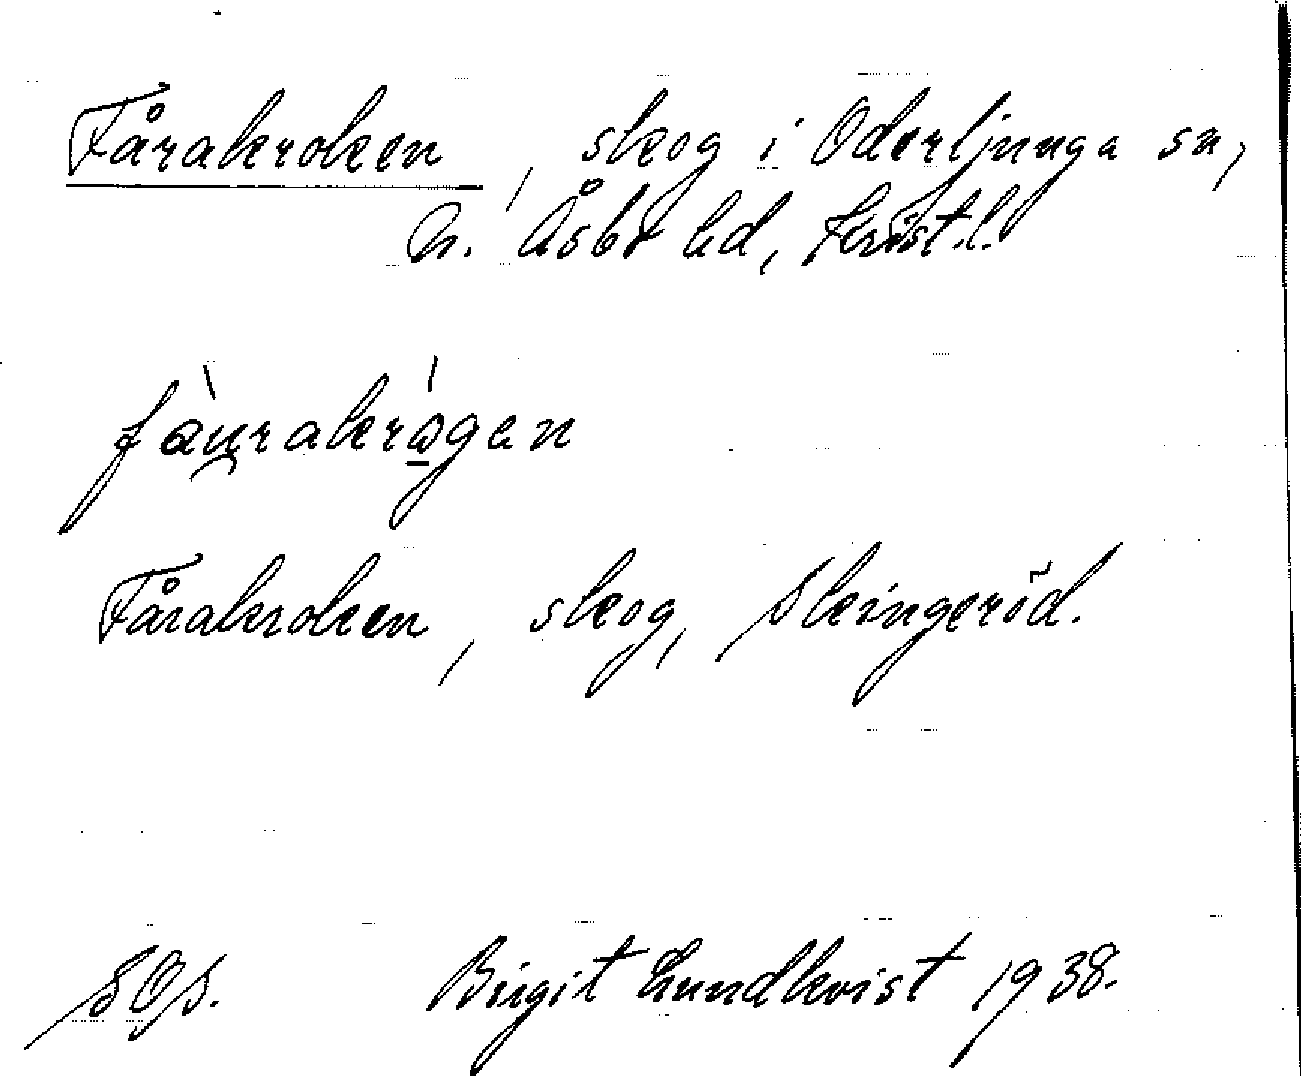 Fårakroken, skog i Oderljunga sn,
N. Åsbo hd, Krist.l.
fàu̯rakrógen
Fårakroken, skog, Skingeröd.
SOS. Birgit Lundkvist 1938.